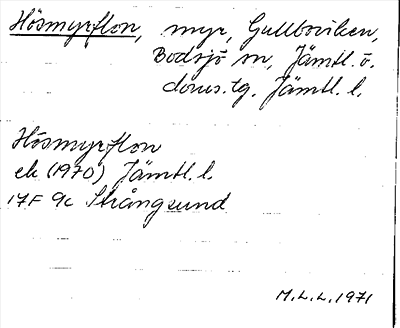 Hösmyrflon, myr, Gullboviken,
Bodsjö sn, Jämtl. ö.
doms.tg. Jämtl. l.
Hösmyrflon
ek (1970) Jämtl. l.
17F 9c Strångsund
M.L.L. 1971